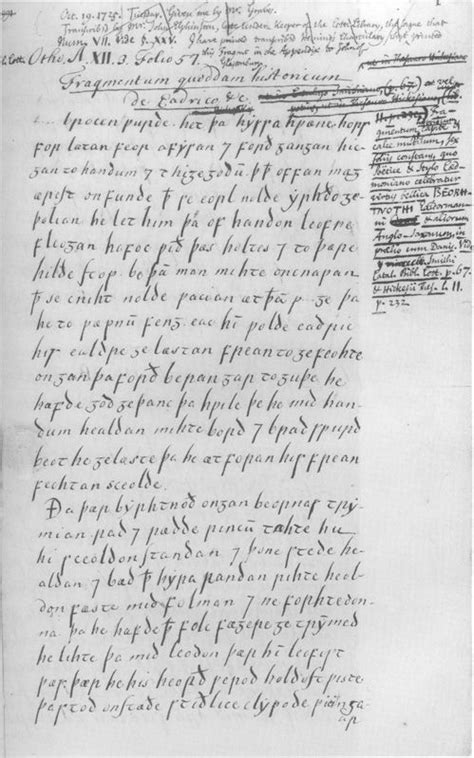 Oct. 19. 1725. Tuesday. Given me by Mr. Graves.
Transcribed by Mr. John Elphinston, Under Keeper of the Cotton Library, the same that
Num VII. Vide p. XXV. I have printed
this Fragm. in the Appendix to John of
Glastonbury
Otho. A. XII. 3. Folio 57.
Fragmentum quoddam historicum
de Eadrico &c.
brocen ƿurde. het þa hyssa hƿæne hors
for lætan feor afysan 7 forð gangan hic
gan to handum 7 thige godū. þꝥ offan mæg
ærest onfunde ꝥ se eorl nolde yrhðo ge-
þolian he let him þa of handon leofre
fleogan hafoc ƿið þæs holtes 7 to þære
hilde stop. be þā man mihte oncnaƿan
ꝥ se cniht nolde ƿacian æt þā ƿ ge þa
he to ƿæpnū feng. eac hī ƿolde eadric
his ealdre gelæstan frean to gefeohte
ongan þa forð beran gar to guþe he
hæfde god geþanc þa hƿile þe he mid han-
dum healdan mihte bord 7 brad sƿurd
beot he gelæste þa he ætforan his frean
feohtan sceolde.
Ða þær byrhtnoð ongan beornas try-
mian rad 7 rædde rincū tæhte hu
hi sceoldon standan 7 þone stede he-
aldan 7 bæd ꝥ hyra randan rihte heol-
don fæste mid folman 7 ne forhtedon-
na. þa he hæfde ꝥ folc fægere getrymed
he lihte þa mid leodon þær hī leofost
ƿæs þær he his heorð ƿerod holdost ƿiste
þa stod on stæðe stiðlice clypode ƿicinga
ar
Fra-
gmentum capite &
calce mutilum, sex
foliis constans, quo
Poetice & Stylo Cæd-
moniano celebratur
virtus bellica BEORH-
TNOTHI Ealdorman-
ni & aliorum
Anglo-Saxonum, in
prælio cum Danis. Vide
Smithi
Catal. Bibl. Cott. p. 67.
& Hickesii Thes. l. II.
p. 232.